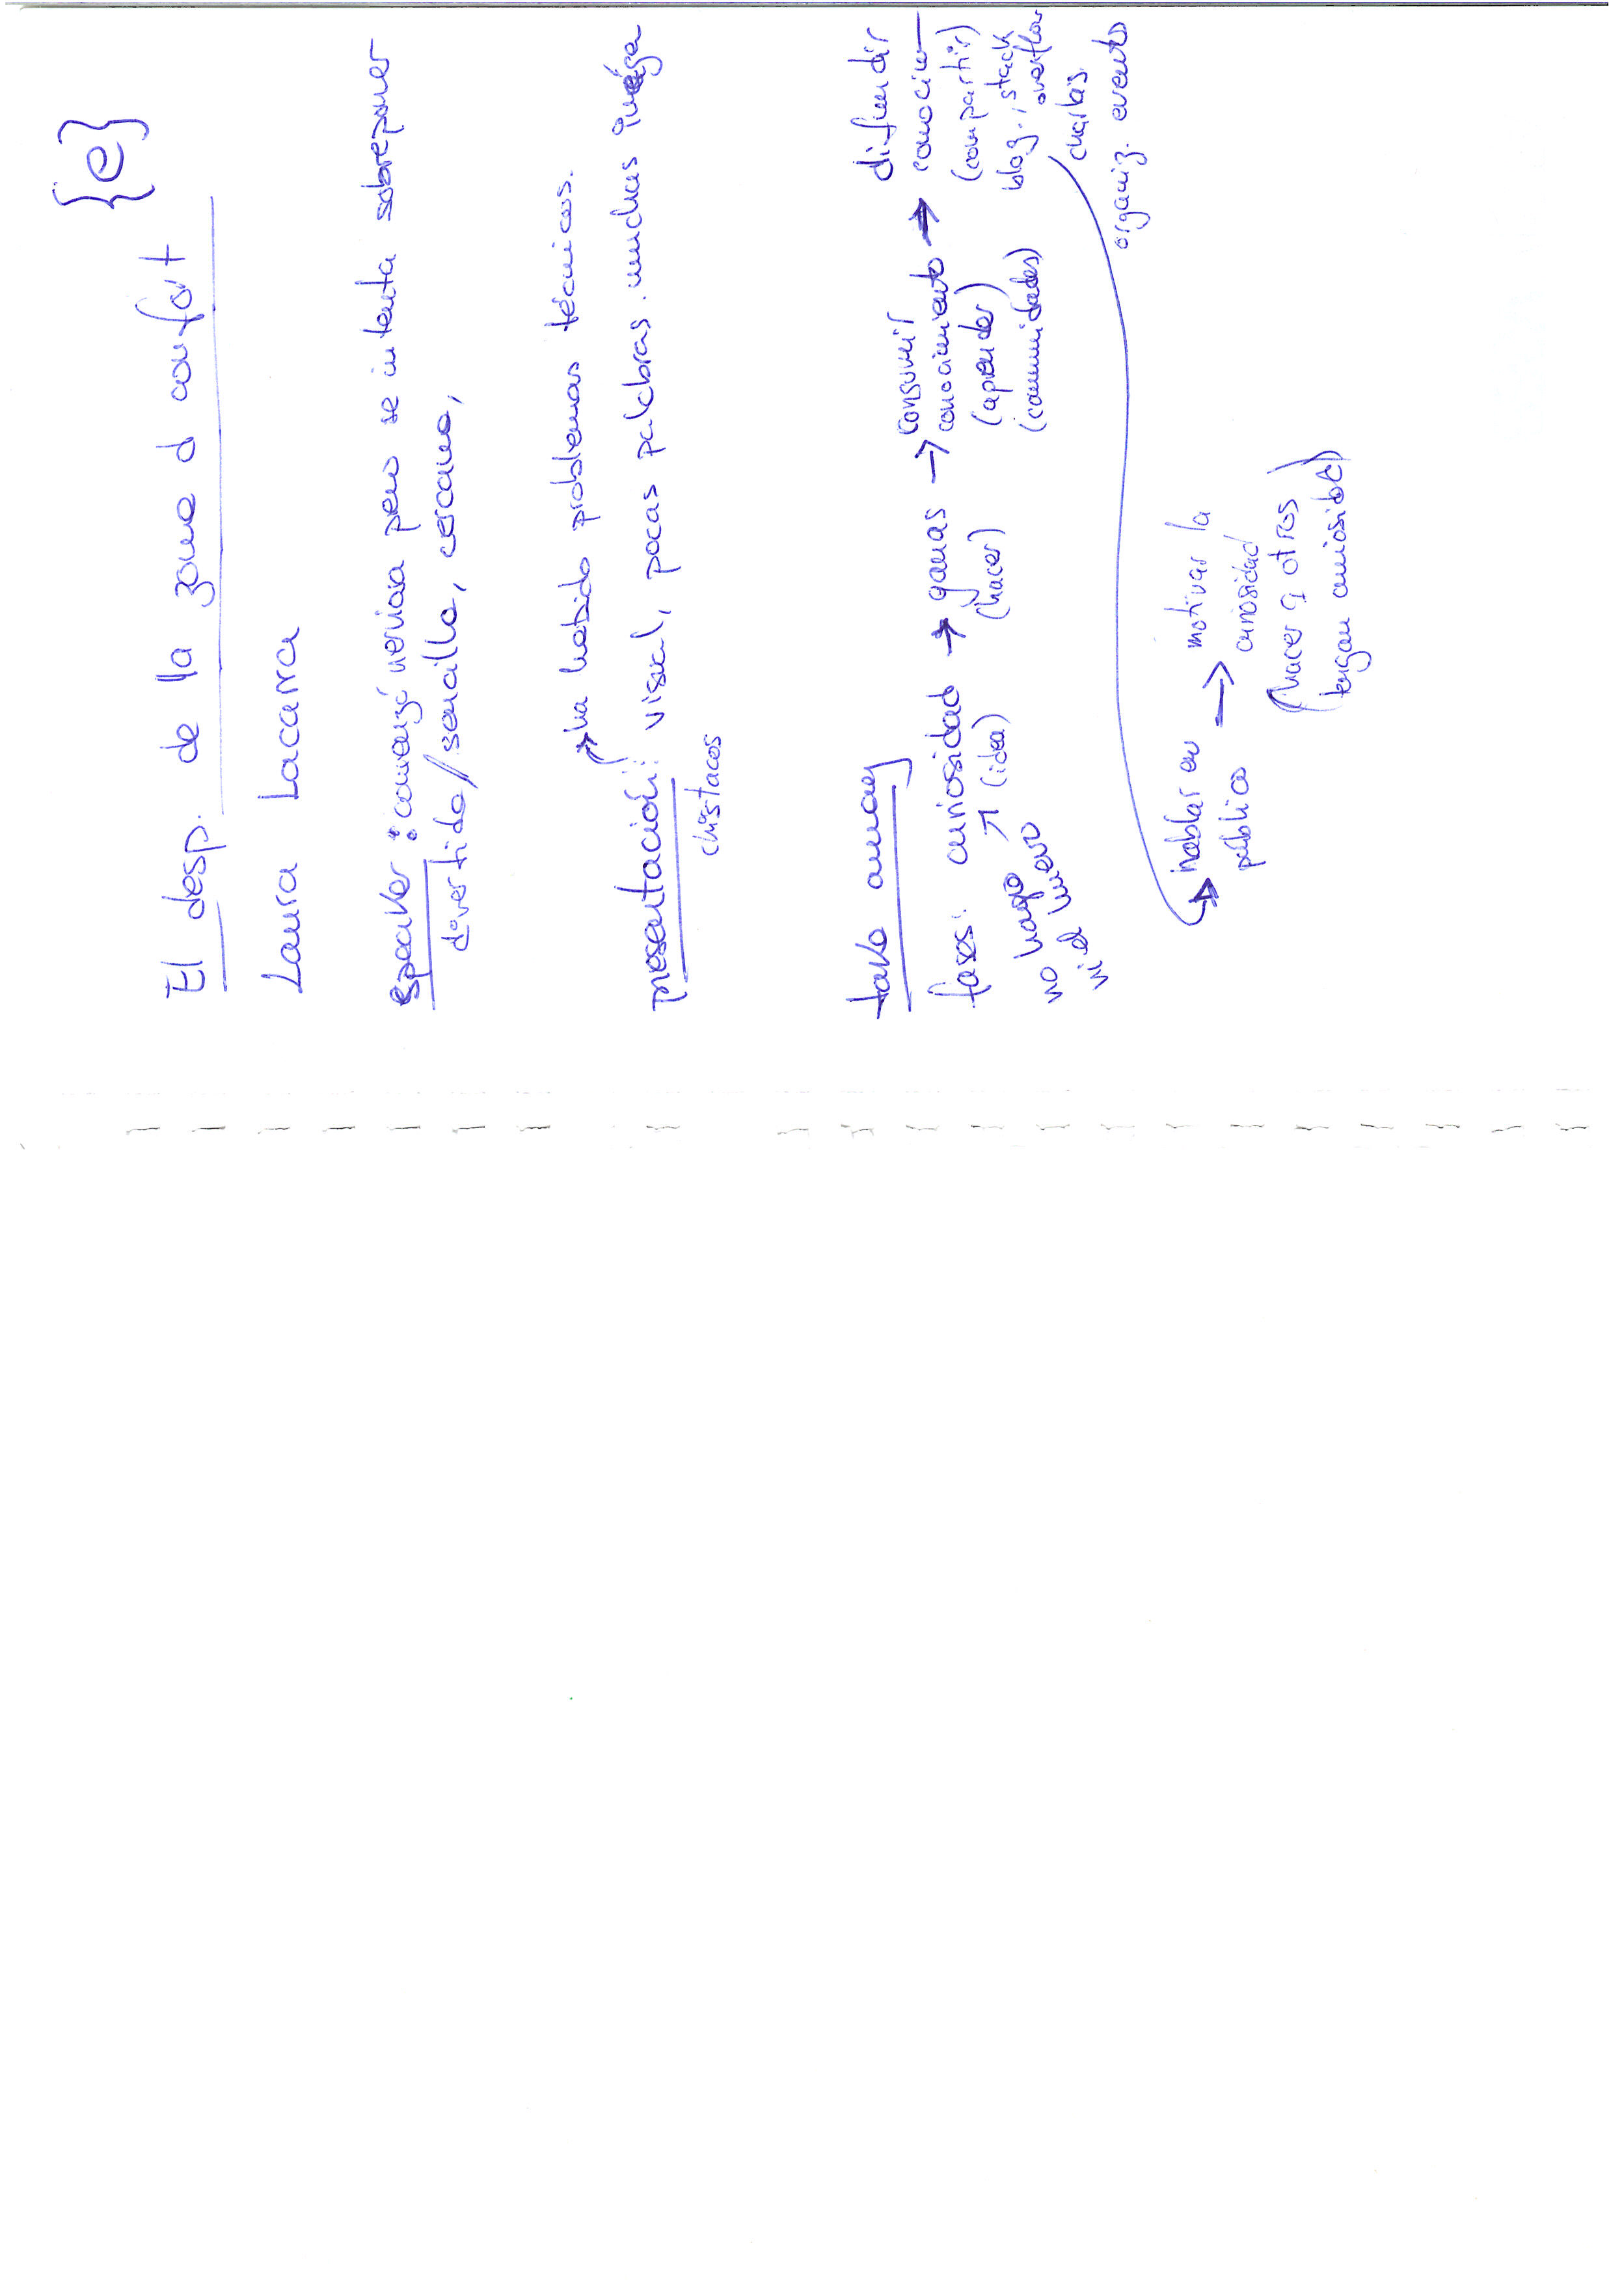 {e}
El desp. de la zona d confort
Laura Lacarra
speaker : comenzó nerviosa pero se intenta sobreponer
divertida/sencilla, cercana,
ha habido problemas técnicos.
presentación: visual, pocas palabras. muchas
chistacos
take away
fases: curiosidad → ganas → consumir conocimiento → difundir conocim
(idea)
(hacer)
(aprender)
(comunidades)
(compartir)
blog., stack
overflow
charlas.
organiz. evento
no hago
ni el huevo
hablar en
público
→ motivar la
curiosidad
(hacer q otros
tengan curiosidad)